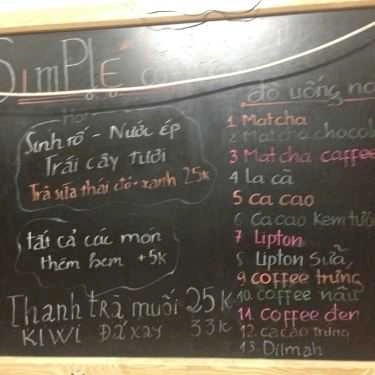 SimPLE
Sinh tố - Nước ép
Trái cây tươi
Trà sữa thái đỏ-xanh 25k
tất cả các món
thêm kem +5k
Thanh trà muối 25k
KIWI Đá xay 33k
đồ uống nó
1 Matcha
2 Matcha chocol
3 Matcha caffee
4 La cã
5 ca cao
6 Ca cao kem tươ
7 Lipton
8 Lipton Sữa
9 coffee trứng
10 coffee nâu
11 coffee đen
12 cacao trứng
13. Dilmah